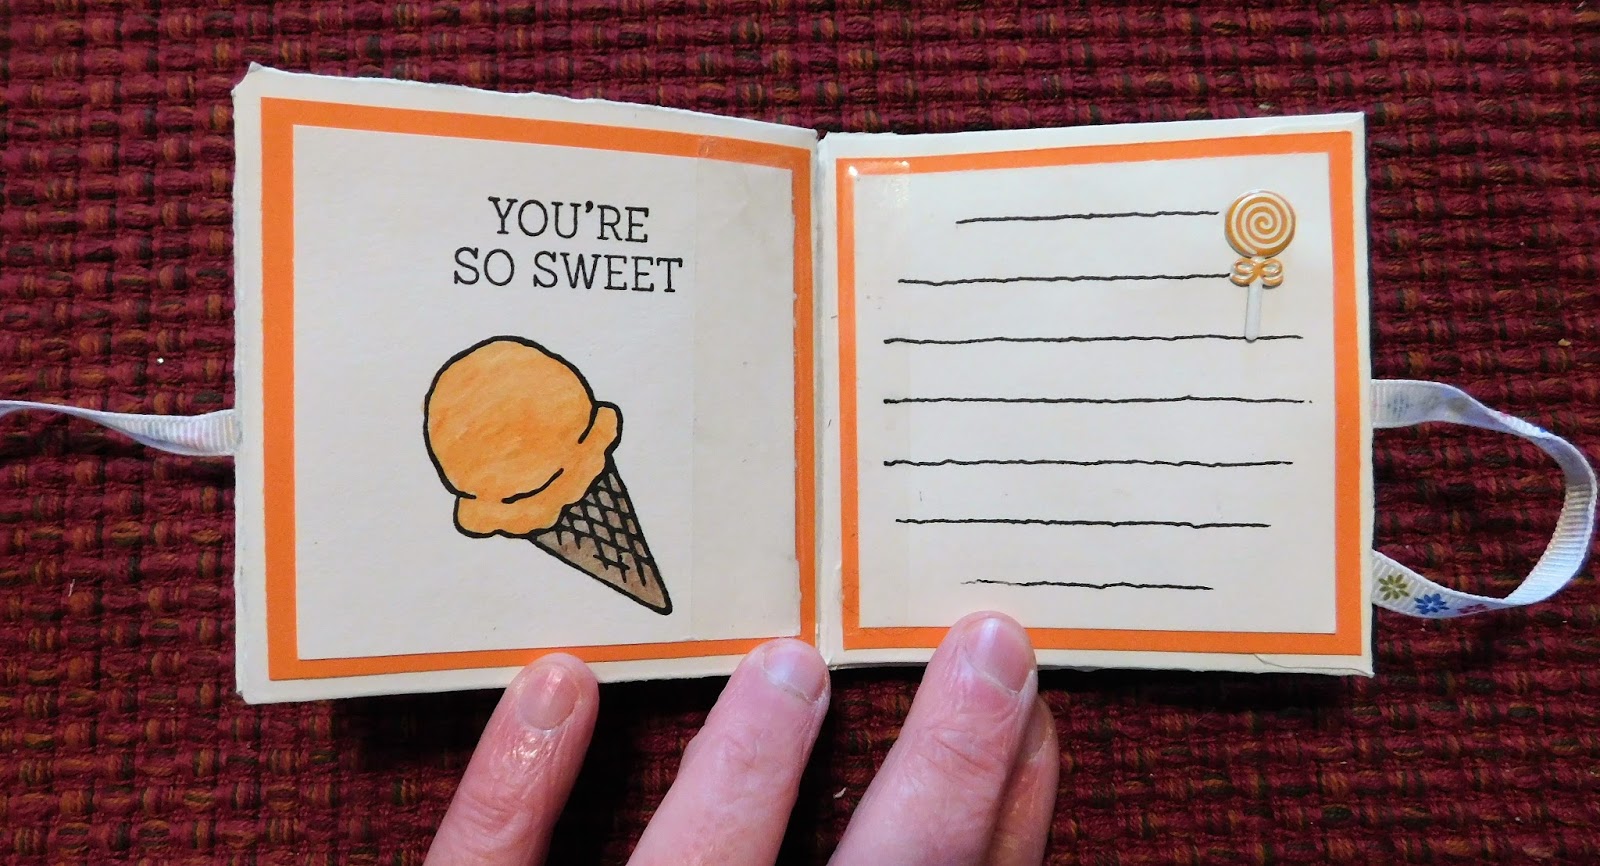 YOU'RE
SO SWEET